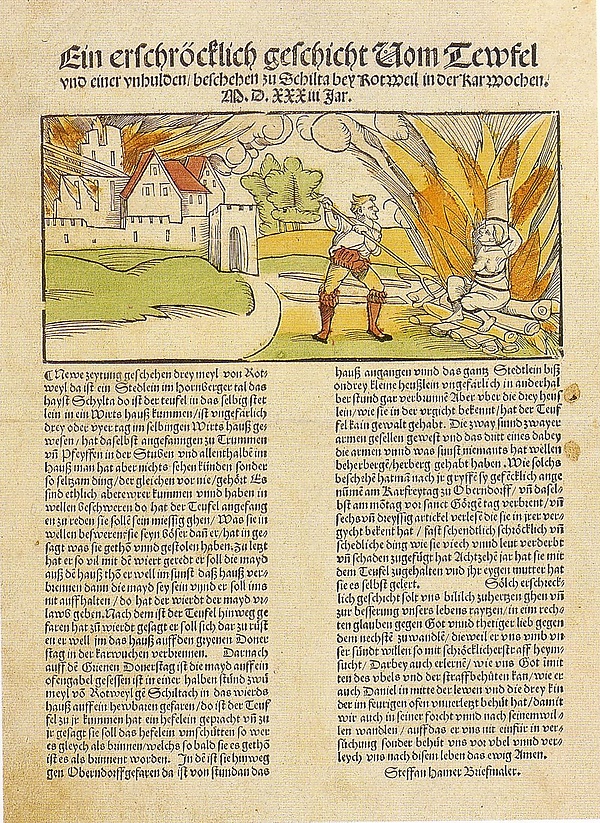 Ein erschröcklich geschicht Vom Tewfel
vnd einer vnhulden/ beschehen zu Schilta bey Rotweil in der Karwochen.
M. D. XXXiii Jar.
Newe zeytung geschehen drey meyl von Rot-
weyl da ist ein Stedlein im Hornberger tal das
hayst Schylta do ist der teufel in das selbig stet
lein in ein Wirts hauß kummen/ist vngefärlich
drey oder vyer tag im selbingen Wirts hauß ge-
wesen/ hat daselbst angefanngen zu Trummen
vñ Pfeyffen in der Stuben vnd allenthalbe im
hauß man hat aber nichts sehen künden sonder
so seltzam ding/ der gleichen vor nie/ gehört Es
sind ethlich abetewrer kummen vnnd haben in
wellen beschweren do hat der Teufel angefang
en zu reden sie sollē sein miessig ghen/ Was sie in
wellen beswerensie seyn böser dañ er/ hat in ge-
sagt was sie gethō vnnd gestolen haben. Zu letzt
hat er so vil mit dē wiert geredt er soll die mayd
auß dē hauß thō er well im sunst daß hauß ver-
brennen dann die mayd sey sein vnnd er soll ims
nit auff halten/ do hat der wierdt der mayd vr-
laub geben. Nach dem ist der Teufel hinweg ge
faren hat zū wierdt gesagt er soll sich dar zu rüst
en er well im das hauß auff den gryenen Doner
stag in der karwuchen verbrennen. Darnach
auff dē Grienen Donerstag ist die mayd auff ein
ofengabel gesessen ist in einer halben stünd zwü
meyl vō Rotweyl gē Schiltach in das wierds
hauß auff ein hewbaren gefaren/ do ist der Teuf
fel zu jr kummen hat ein hefelein gepracht vñ zu
jr gesagt sie soll das hefelein vmschütten so wer
es gleych als brinnen/welchs so bald sie es gethō
ist es als brinnent worden. In dē ist sie hinweg
gen Oberndorff gefaren da ist von stundan das
hauß angangen vnnd das gantz Stedtlein biß
on drey kleine heußlein vngefärlich in anderhal
ber stund gar verbrunnē Aber vber die drey heus
lein/ wie sie in der vrgicht bekent/ hat der Teuf
fel kain gewalt gehabt. Die zway sinnd zwayer
armen gesellen gewest vnd das dritt eines dabey
die armen vnnd was sunst niemants hat wellen
beherbergē/herberg gehabt haben. Wie solchs
beschehē hat mā nach jr gryffē sy gefēcklich ange
nūmē am Karfreytag zu Oberndorff/ vñ dasel-
bst am mōtag vor sanct Görgē tag verbrent/ vñ
sechs vñ dreyssig artickel verlesē die sie in jrer ver-
gycht bekent hat/ fast schendlich schröcklich vñ
schedliche ding wie sie viech vnnd leut verderbt
vñ schaden zugefügt hat Achtzehē jar hat sie mit
dem Teufel zugehalten vnd jhr eygen mutter hat
sie es selbst gelert. Sölch erschreck-
lich geschicht solt vns billich zuhertzen ghen vñ
zur besserung vnsers lebens raytzen/ in eim rech-
ten glauben gegen Got vnnd thetiger lieb gegen
dem nechstē zu wandlē/ dieweil er vns vmb vn
ser sündt willen so mit schröcklicher straff heym-
sucht/ Darbey auch erlernē/ wie vns Got imit
ten des vbels vnd der straff behüten kan/ wie er
auch Daniel in mitte der lewen vnd die drey kin
der im feurigen ofen vnuerletzt behüt hat/ damit
wir auch in seiner forcht vnnd nach seinem wil-
len wandlen/ auff das er vns nit einfür in ver-
süchung sonder behüt vns vor vbel vnnd ver-
leych vns nach disem leben das ewig Amen.
Steffan Hamer Briefmaler.